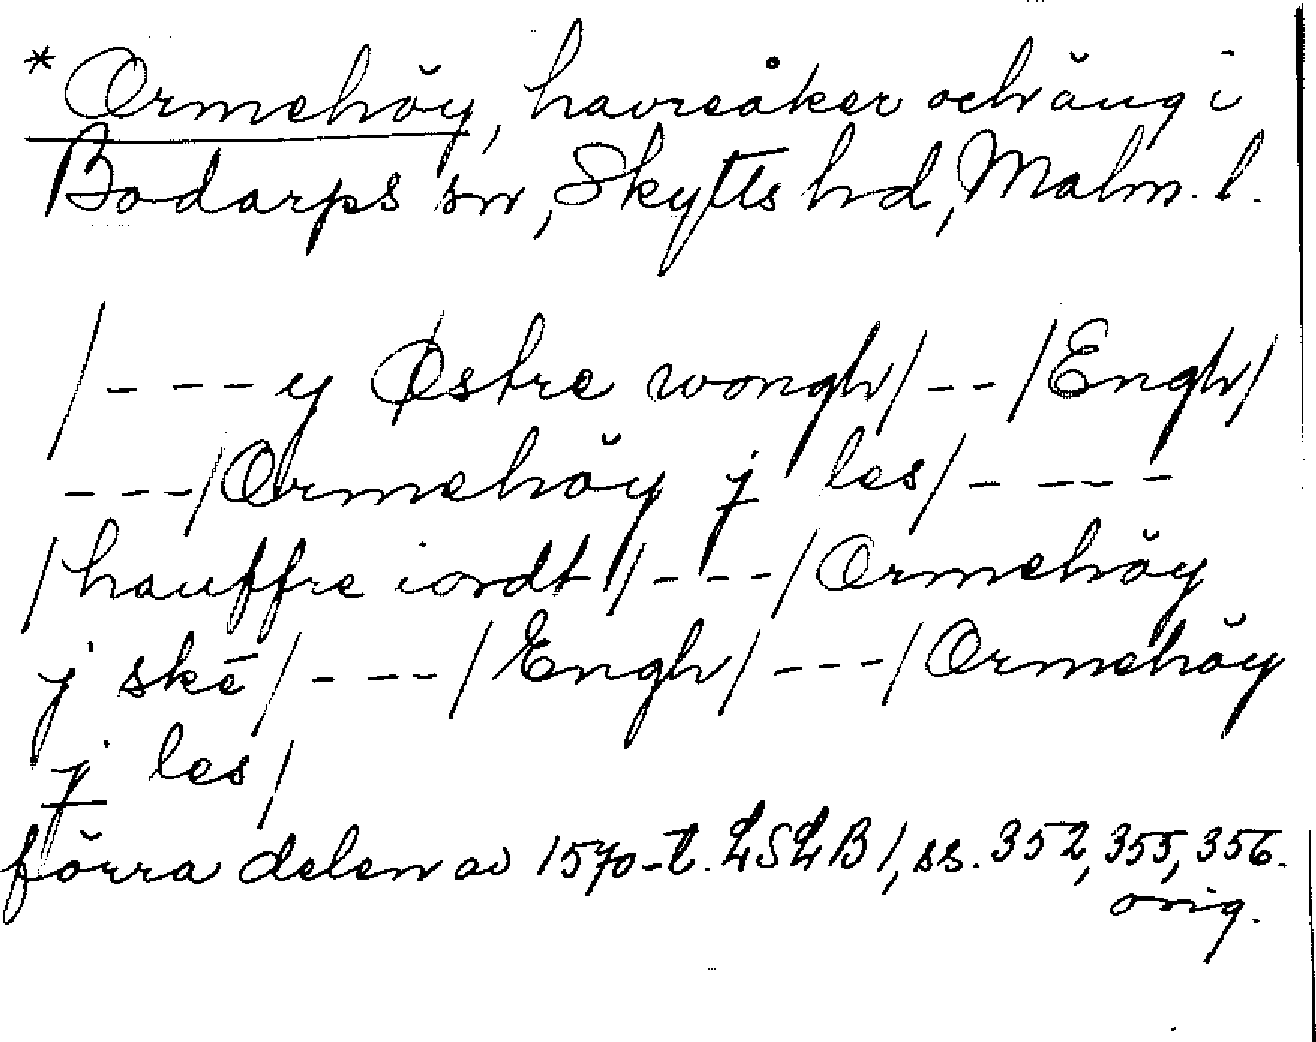 * Ormehöy, havreåker och äng i
Bodarps sn, Skytts hd, Malm. l.
/---y Østre wongh/--/Engh/
---/Ormehöy j les/----
/hauffre iordt/---/Ormehöy
j skē/---/Engh/---/Ormehöy
j les/
förra delen av 1570-t. LSLB 1, ss. 352, 355, 356.
orig.